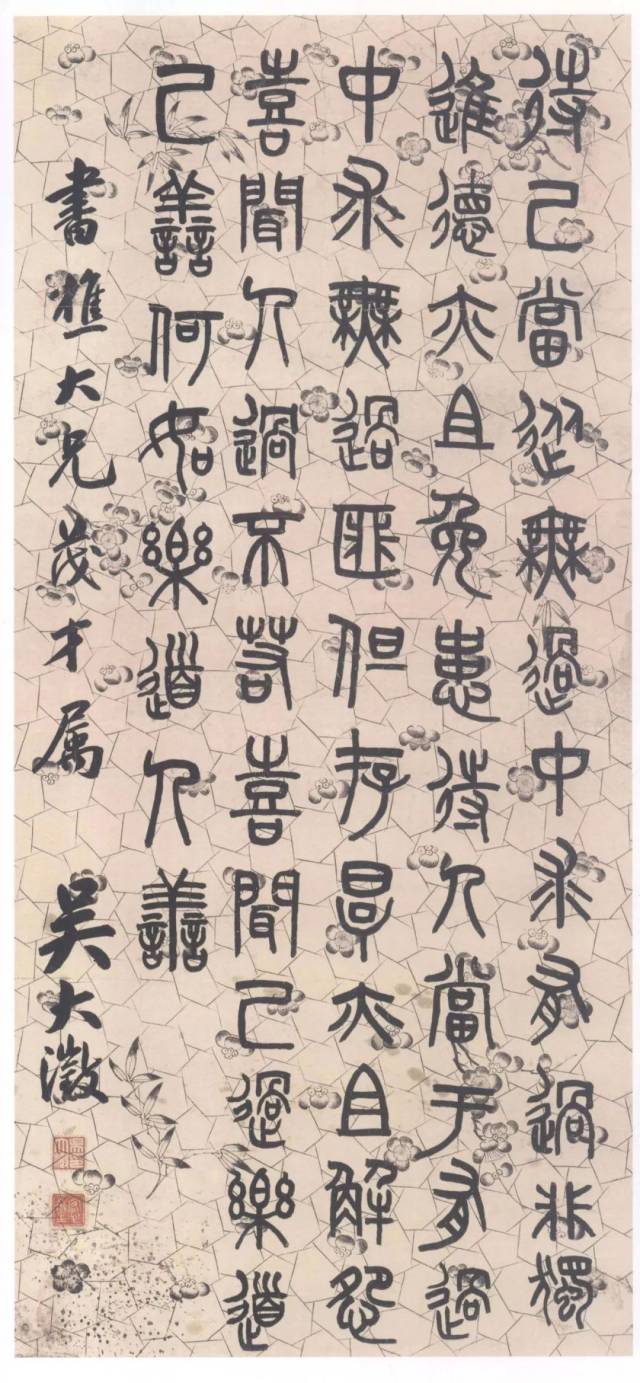 待己當從無過中求有過非獨
進德亦且免患待人當于有過
中求無過匪但存厚亦且解怨
喜聞人過不若喜聞己過樂道
己譱何如樂道人譱
書樵大兄茂才属 吴大澂